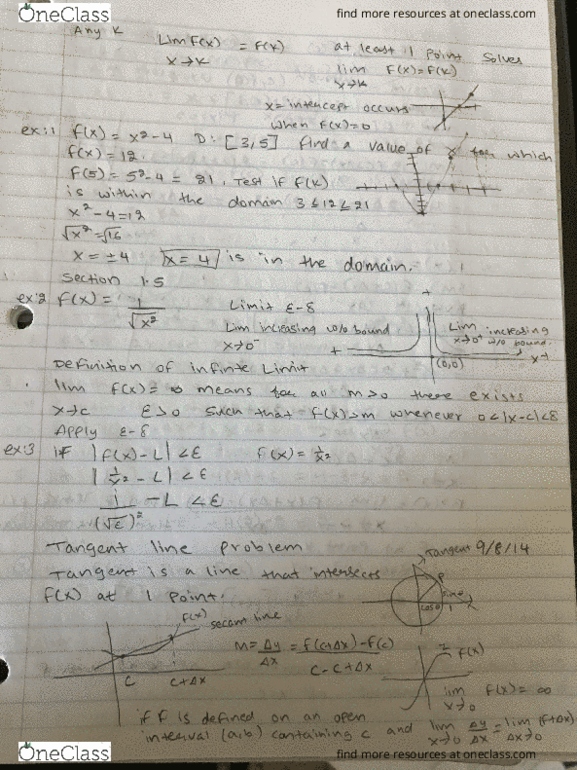 OneClass
find more resources at oneclass.com
Any K
Lim F(x) = F(K)
x→K
at least 1 point solves
lim F(x)=F(K)
x→K
x=intercept occurs
when F(x)=0
ex:1 f(x) = x²-4 D: [3,5] find a value of x for which
f(x)=12.
F(5)=5²-4= 21, Test if f(x)
is within the domain 3≤12≤21
x²-4=12
√x²=√16
x=±4 x=4 is in the domain.
Section 1.5
ex:2 f(x)= 1/√x²
Limit ε-8
Lim increasing w/o bound
x→0⁻
Lim increasing
x→0⁺ w/o bound.
(0,0)
Definition of infinite Limit
lim f(x)=∞ means for all m>0 there exists
x→c ε>0 such that f(x)>m whenever 0<|x-c|<8
Apply ε-8
ex:3 if |f(x)-L|<ε f(x)=1/x²
|1/x²-L|<ε
1/(√ε)² -L<ε
Tangent line problem
Tangent 9/8/14
Tangent is a line that intersects
f(x) at 1 point.
P
sinθ
cosθ 1
f(x)
secant line
M=Δy/Δx = f(c+Δx)-f(c)/c-c+Δx
f(x)
C C+Δx
lim F(x)=∞
x→0
if F is defined on an open
interval (a,b) containing c and lim Δy/Δx = lim
x→0 Δx→0
OneClass
find more resources at oneclass.com